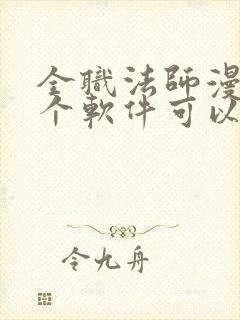 全職法師漫
个軟件可以
令九舟